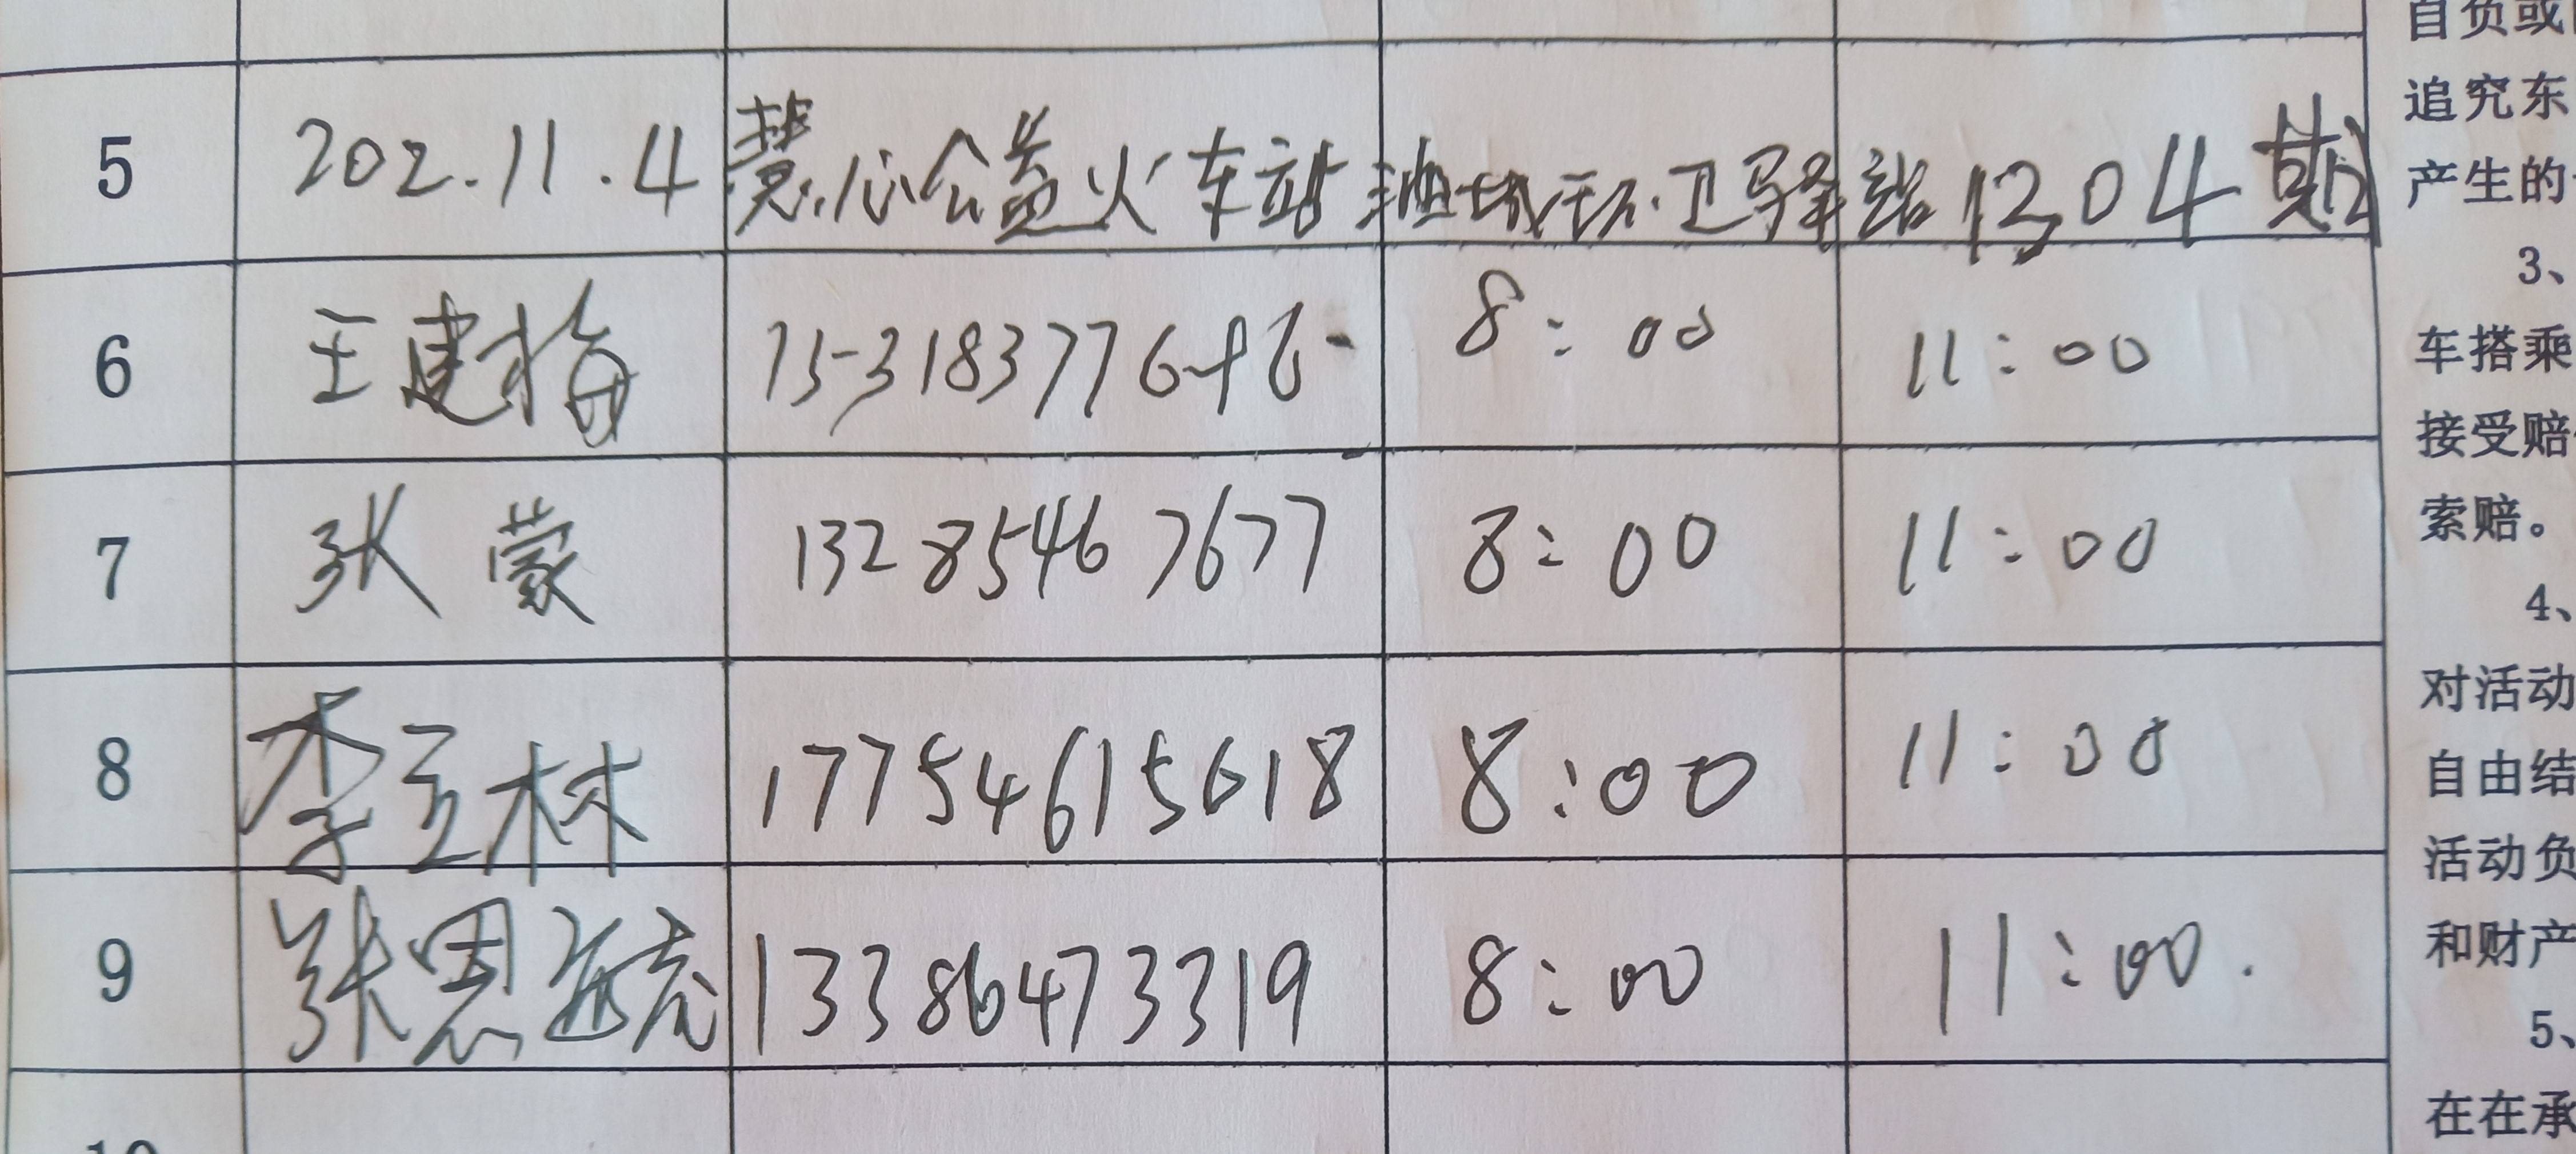 5 202.11.4 慧心公益火车站油城环卫驿站1304期
6 王建梅 15318377676 8:00 11:00
7 张蒙 13285467677 8:00 11:00
8 李玉林 17754615618 8:00 11:00
9 张恩毓 13386473319 8:00 11:00
自负或
追究东
产生的
3、
车搭乘
接受赔
索赔。
4、
对活动
自由结
活动负
和财产
5、
在在承